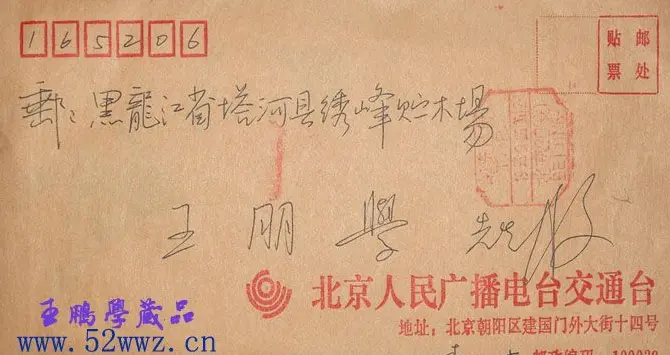 165206
贴邮
票处
郵：黒龍江省塔河县绣峰贮木場
王朋學 先生收
北京人民广播电台交通台
地址：北京朝阳区建国门外大街十四号
邮政编码：100022
王鵬學藏品
www.52wwz.cn